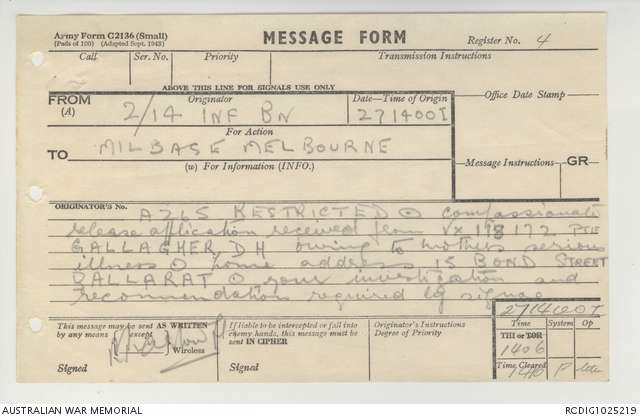 Army Form C2136 (Small)
(Pads of 100) (Adapted Sept. 1943)
MESSAGE FORM
Register No. 4
Call
Ser. No.
Priority
Transmission Instructions
ABOVE THIS LINE FOR SIGNALS USE ONLY
FROM
(A)
Originator
2/14 INF BN
Date—Time of Origin
271400I
Office Date Stamp
For Action
TO
MILBASE MELBOURNE
(w) For Information (INFO.)
Message Instructions
GR
ORIGINATOR'S No.
A265 RESTRICTED O compassionate
release application received from VX 178172 Pte
GALLAGHER D H owing to mothers serious
illness O home address 15 BOND STREET
BALLARAT O your investigation and
recommendation required by signal
This message may be sent AS WRITTEN
by any means (except
) Wireless
Signed
If liable to be intercepted or fall into
enemy hands, this message must be
sent IN CIPHER
Signed
Originator's Instructions
Degree of Priority
Time
System
Op
THI or TOR
1406
Time Cleared
1410
P
AUSTRALIAN WAR MEMORIAL
RCDIG1025219